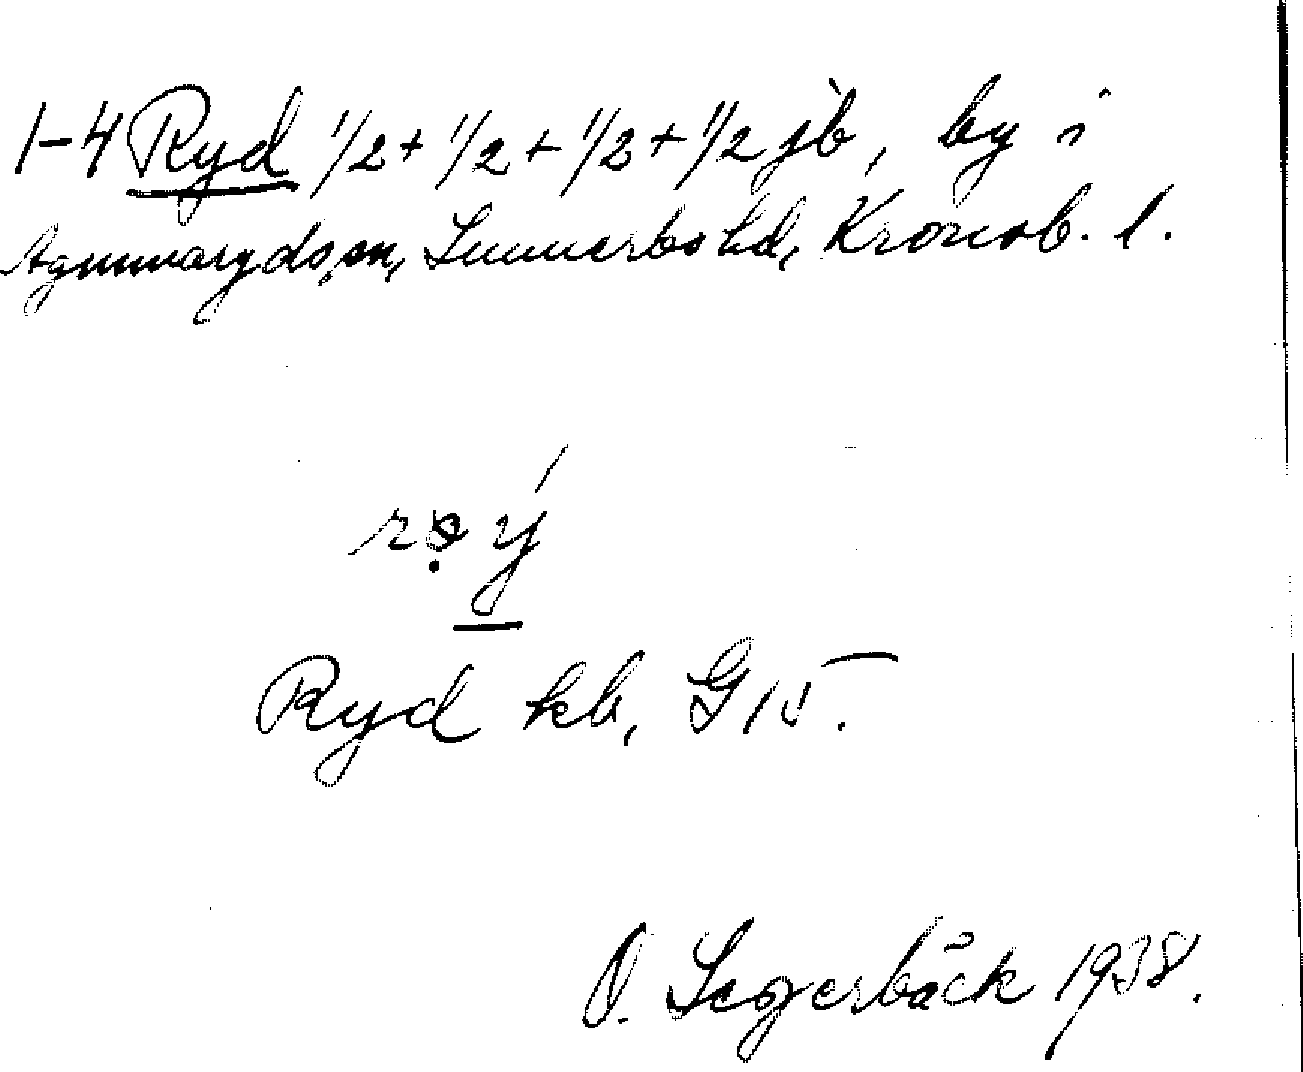 1-4 Ryd 1/2 + 1/2 + 1/2 + 1/2 jb, by i
Agunnaryds sn, Sunnerbo hd, Kronob. l.
Ryd kb, G 15.
O. Segerbäck 1938.